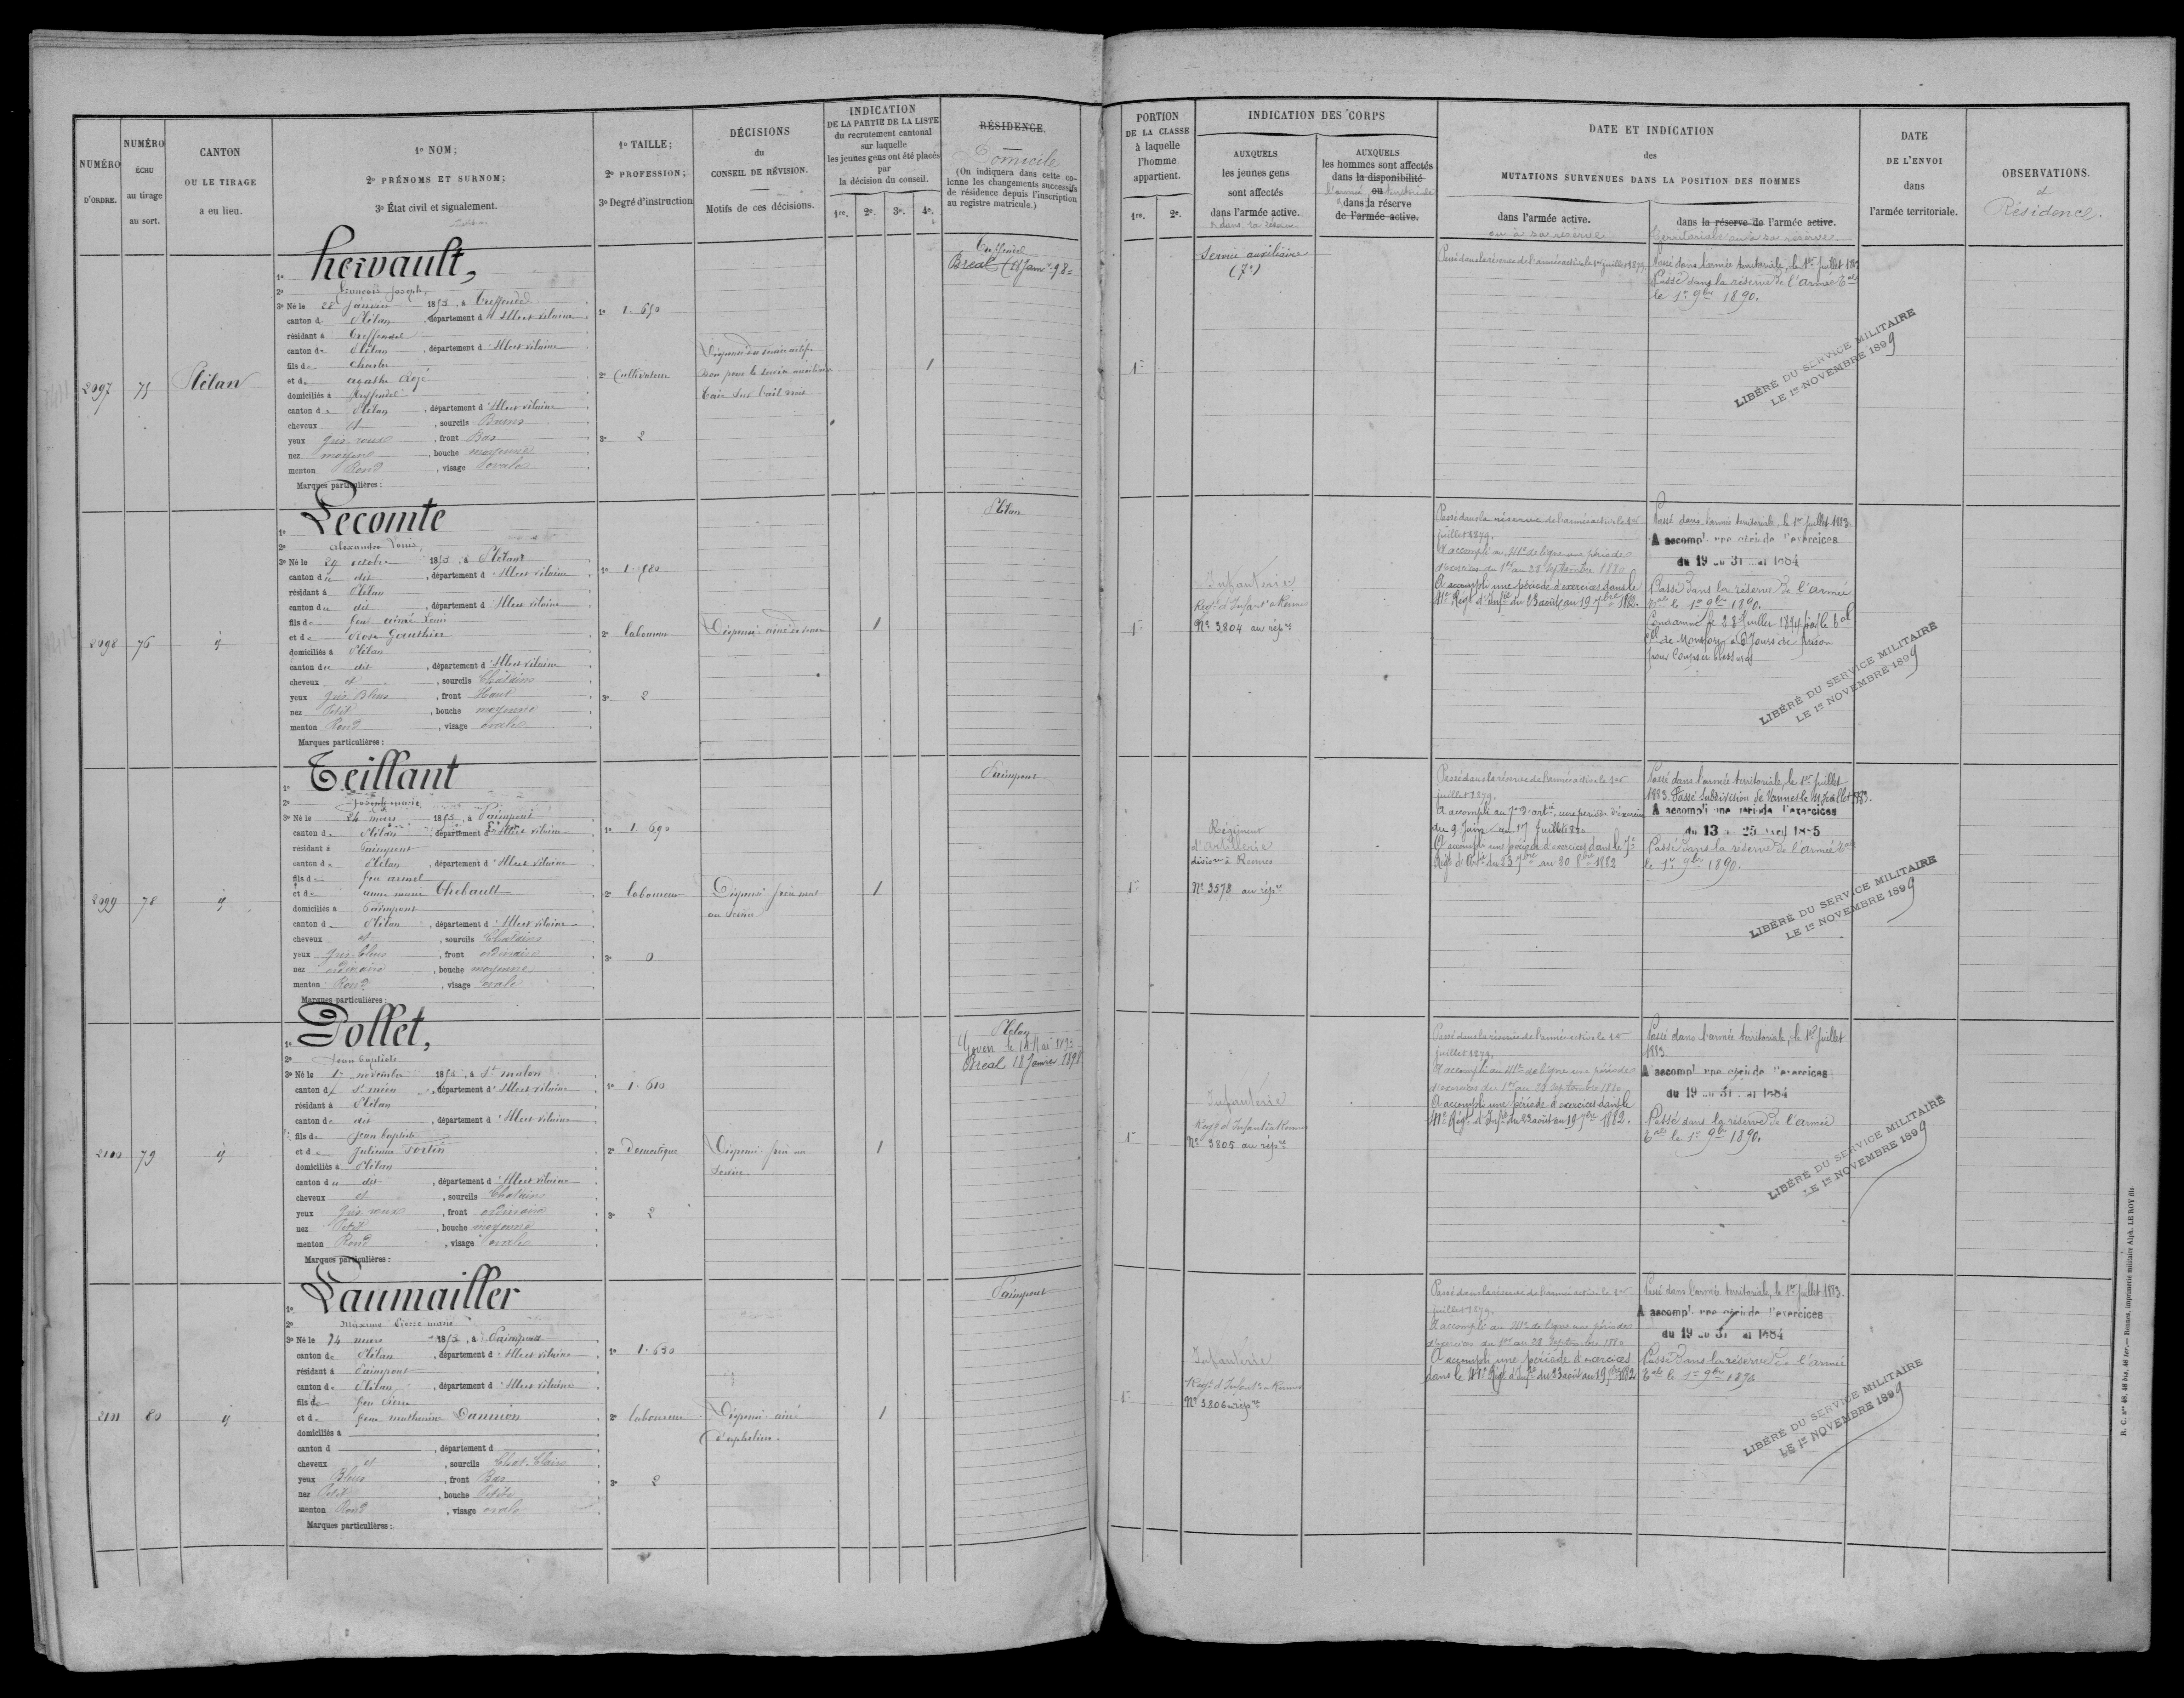 NUMÉRO
D'ORDRE.
NUMÉRO
ÉCHU
au tirage
au sort.
CANTON
OU LE TIRAGE
a eu lieu.
1º NOM;
2º PRÉNOMS ET SURNOM;
3º État civil et signalement.
1º TAILLE;
2º PROFESSION;
3º Degré d'instruction
DÉCISIONS
du
CONSEIL DE RÉVISION.
Motifs de ces décisions.
INDICATION
DE LA PARTIE DE LA LISTE
du recrutement cantonal
sur laquelle
les jeunes gens ont été placés
par
la décision du conseil.
1re. 2e. 3e. 4e.
RÉSIDENCE
Domicile
(On indiquera dans cette co-
lonne les changements successifs
de résidence depuis l'inscription
au registre matricule.)
PORTION
DE LA CLASSE
à laquelle
l'homme
appartient.
1re. 2e.
INDICATION DES CORPS
AUXQUELS
les jeunes gens
sont affectés
dans l'armée active.
& dans la réserve
AUXQUELS
les hommes sont affectés
dans la disponibilité
ou
l'armée territoriale
dans la réserve
de l'armée active.
DATE ET INDICATION
des
MUTATIONS SURVENUES DANS LA POSITION DES HOMMES
dans l'armée active.
ou à sa réserve
dans la réserve de l'armée active.
territoriale ou à sa réserve
DATE
DE L'ENVOI
dans
l'armée territoriale.
OBSERVATIONS.
et
Résidence.
2097
75
Plélan
1º Hervault,
2º François Joseph,
3º Né le 28 Janvier 1853, à Treffendel
canton de Plélan, département d'Ille et Vilaine
résidant à Treffendel
canton de Plélan, département d'Ille et Vilaine
fils de Charles
et de Agathe Rozé
domiciliés à Treffendel
canton de Plélan, département d'Ille et Vilaine
cheveux et, sourcils Bruns
yeux gris roux, front Bas
nez moyen, bouche moyenne
menton Rond, visage ovale
Marques particulières:
1º 1.650
2º Cultivateur
3º 2
1
Treffendel
Bréal (18 Janvr 98=
1re
Service auxiliaire
(7e)
Passé dans la réserve de l'armée active le 1er juillet 1879.
Passé dans l'armée territoriale, le 1er Juillet 1883
Passé dans la réserve de l'armée tale
le 1er 9bre 1890.
LIBÉRÉ DU SERVICE MILITAIRE
LE 1er NOVEMBRE 1899
2098
76
id
1º Lecomte
2º Alexandre Louis,
3º Né le 29 octobre 1853, à Plélan
canton du dit, département d'Ille et Vilaine
résidant à Plélan
canton du dit, département d'Ille et Vilaine
fils de feu aimé Louis
et de Rose Gauthier
domiciliés à Plélan
canton du dit, département d'Ille et Vilaine
cheveux et, sourcils Châtains
yeux gris Bleus, front Haut
nez Petit, bouche moyenne
menton Rond, visage ovale
Marques particulières:
1º 1.580
2º laboureur
3º 2
Dispensé aîné de veuve
1
Plélan
1re
Infanterie
Régt d'Infant à Rennes
Nº 3804 au répre
Passé dans la réserve de l'armée active le 1er
juillet 1879.
A accompli au 41e de ligne une période
d'exercices du 1er au 28 septembre 1880
A accompli une période d'exercices dans le
41e Régt d'Infie du 23 août au 19 7bre 1882.
Passé dans l'armée territoriale, le 1er Juillet 1883
A accompli une période d'exercices
du 19 au 31 mai 1884
Passé dans la réserve de l'armée
tale le 1er 9bre 1890.
Condamné le 28 Juillet 1894 par le tal
Cel de Montfort à 6 Jours de prison
pour Coups et blessures
LIBÉRÉ DU SERVICE MILITAIRE
LE 1er NOVEMBRE 1899
2099
78
id
1º Teillant
2º Joseph marie
3º Né le 24 mars 1853, à Paimpont
canton de Plélan, département d'Ille et Vilaine
résidant à Paimpont
canton de Plélan, département d'Ille et Vilaine
fils de feu armel
et de anne marie Thebault
domiciliés à Paimpont
canton de Plélan, département d'Ille et Vilaine
cheveux et, sourcils Châtains
yeux gris bleus, front ordinaire
nez ordinaire, bouche moyenne
menton Rond, visage ovale
Marques particulières:
1º 1.690
2º laboureur
3º 0
Dispensé frère mort
au service
1
Paimpont
1re
Régiment
d'artillerie
division à Rennes
Nº 3578 au répre
Passé dans la réserve de l'armée active le 1er
juillet 1879.
A accompli au 7e d'artie une période d'exercices
du 9 Juin au 17 Juillet 1880
A accompli une période d'exercices dans le 7e
Régt d'Artie du 3 7bre au 30 8bre 1882
Passé dans l'armée territoriale, le 1er Juillet
1883. Passé Subdivision de Vannes le 11 Juillet 1883.
A accompli une période d'exercices
du 13 au 25 avril 1885
Passé dans la réserve de l'armée tale
le 1er 9bre 1890.
LIBÉRÉ DU SERVICE MILITAIRE
LE 1er NOVEMBRE 1899
2100
79
id
1º Pollet,
2º Jean baptiste
3º Né le 1er novembre 1853, à St malon
canton de St méen, département d'Ille et Vilaine
résidant à Plélan
canton du dit, département d'Ille et Vilaine
fils de Jean baptiste
et de Julienne Sortin
domiciliés à Plélan
canton du dit, département d'Ille et Vilaine
cheveux et, sourcils Châtains
yeux gris roux, front ordinaire
nez Petit, bouche moyenne
menton Rond, visage ovale
Marques particulières:
1º 1.610
2º Domestique
3º 2
Dispensé frère au
service.
1
Plélan
Goven le 14 Mai 1893
Bréal 18 Janvier 1898
1re
Infanterie
Régt d'Infant à Rennes
Nº 3805 au répre
Passé dans la réserve de l'armée active le 1er
juillet 1879.
A accompli au 41e de ligne une période
d'exercices du 1er au 28 septembre 1880
A accompli une période d'exercices dans le
41e Régt d'Infie du 23 août au 19 7bre 1882.
Passé dans l'armée territoriale, le 1er Juillet
1883
A accompli une période d'exercices
du 19 au 31 mai 1884
Passé dans la réserve de l'armée
tale le 1er 9bre 1890.
LIBÉRÉ DU SERVICE MILITAIRE
LE 1er NOVEMBRE 1899
2101
80
id
1º Laumailler
2º Maxime Pierre marie
3º Né le 24 mars 1853, à Paimpont
canton de Plélan, département d'Ille et Vilaine
résidant à Paimpont
canton de Plélan, département d'Ille et Vilaine
fils de feu Pierre
et de feue mathurine Dannion
domiciliés à
canton d, département d
cheveux et, sourcils Chat. Clairs
yeux Bleus, front Bas
nez Petit, bouche Petite
menton Rond, visage ovale
Marques particulières:
1º 1.630
2º laboureur
3º 2
Dispensé aîné
d'orphelins.
1
Paimpont
1re
Infanterie
Régt d'Infant à Rennes
Nº 3806 au répre
Passé dans la réserve de l'armée active le 1er
juillet 1879.
A accompli au 41e de ligne une période
d'exercices du 1er au 28 septembre 1880
A accompli une période d'exercices
dans le 41e Régt d'Infie du 23 août au 19 7bre 1882
Passé dans l'armée territoriale, le 1er Juillet 1883.
A accompli une période d'exercices
du 19 au 31 mai 1884
Passé dans la réserve de l'armée
tale le 1er 9bre 1890
LIBÉRÉ DU SERVICE MILITAIRE
LE 1er NOVEMBRE 1899
R. C. nos 48, 48 bis, 48 ter.— Rennes, imprimerie militaire Alph. LE ROY fils.